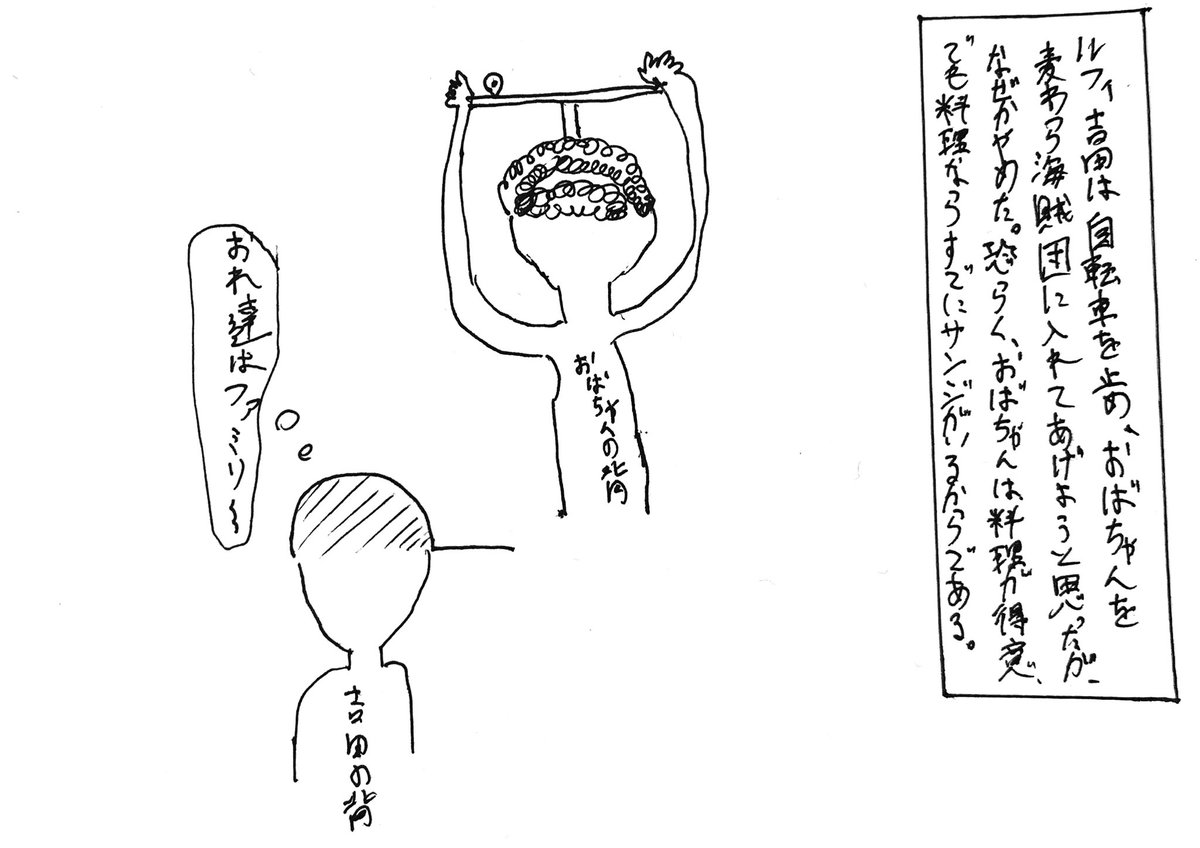 ルフィ吉田は自転車を止め、おばちゃんを
麦わら海賊団に入れてあげようと思ったが、
なぜかやめた。恐らく、おばちゃんは料理が得意、
でも料理ならすでにサンジがいるからである。
おばちゃんの背
おれ達はファミリ〜
吉田の背